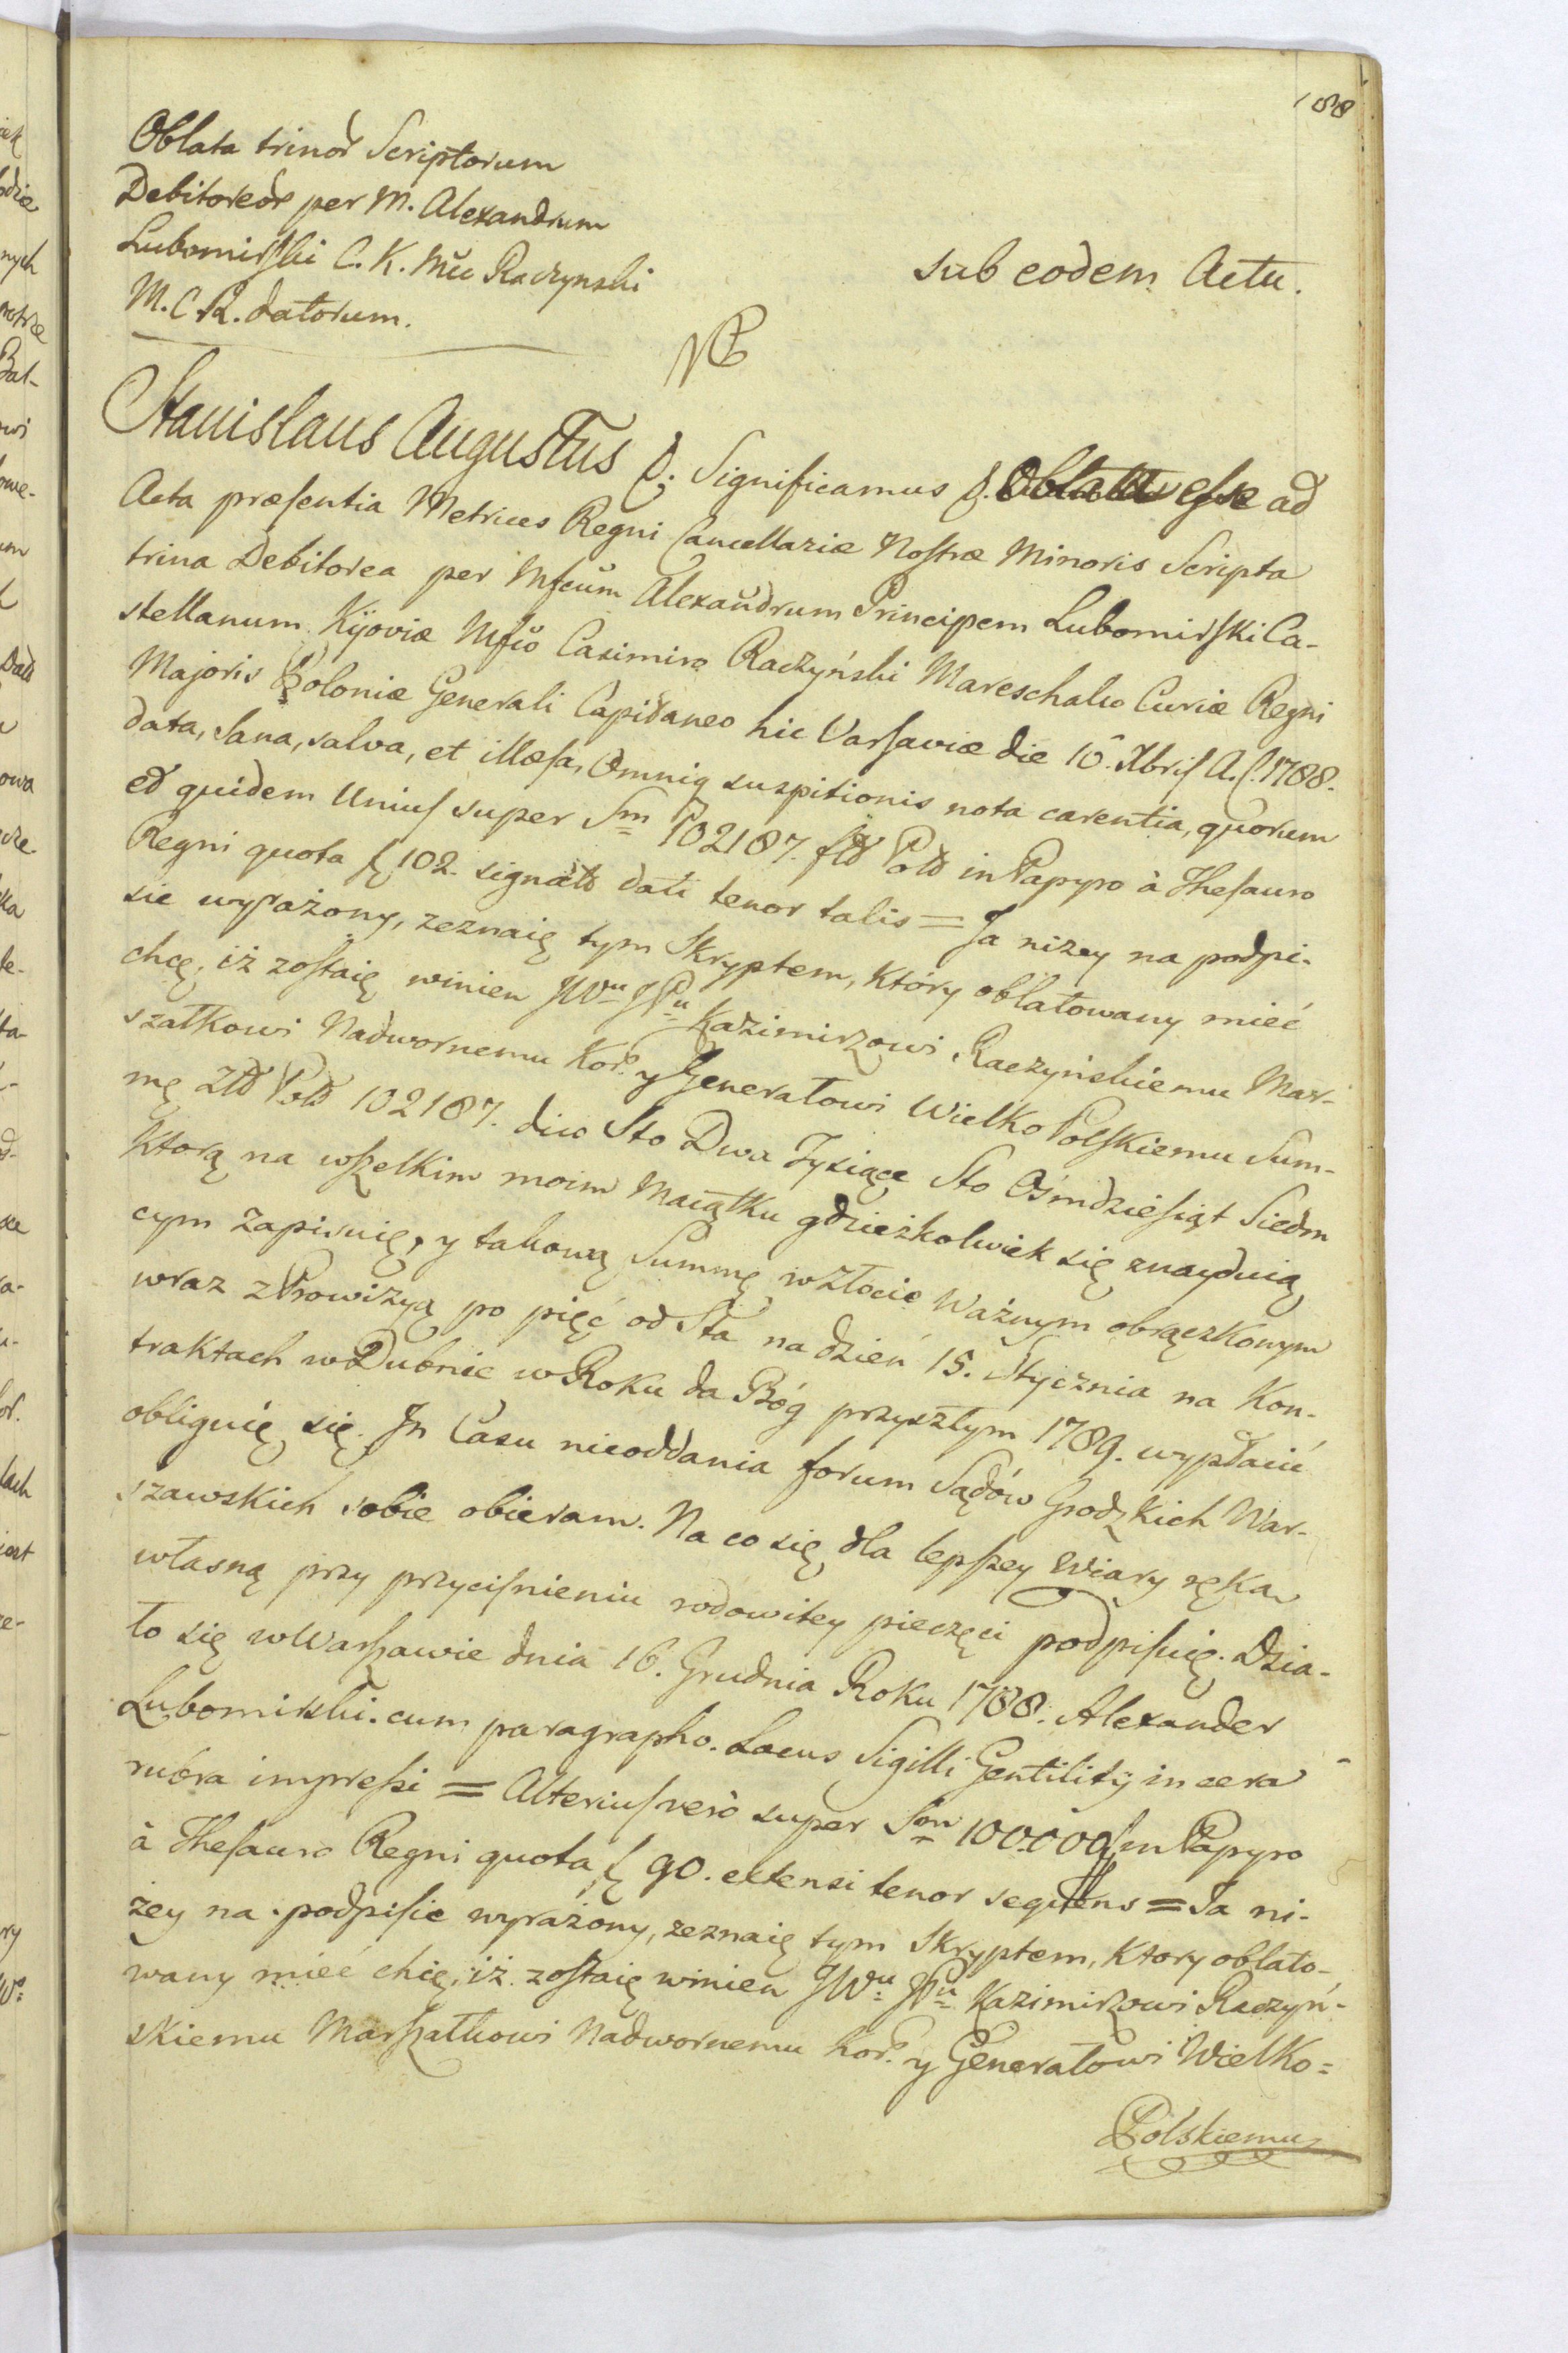 188
Oblata trinor Scriptorum
Debitoreor per M. Alexandrum
Lubomirski C. K. Mco Raczynski
M. C. R. datorum.
Sub eodem Actu.
Stanislaus Augustus &. Significamus &. Oblata esse ad
Acta præsentia Metrices Regni Cancellariæ Nostræ Minoris Scripta
trina Debitorea per Mfcum Alexandrum Principem Lubomirski Ca-
stellanum Kijoviæ Mfco Casimiro Raczyński Mareschalco Curiæ Regni
Majoris Poloniæ Generali Capitaneo hic Varsaviæ die 16. Xbris A. C. 1788.
data, sana, salva, et illæsa, Omniq suspitionis nota carentia, quorum
et quidem Unius super Sm 102187. fld Pold in Papyro à Thesauro
Regni quota fl 102. signato dati tenor talis = Ja niżey na podpi-
sie wyrażony, zeznaię tym Skryptem, który oblatowany mieć
chcę, iż zostaię winien JWu JPu Kazimirzowi Raczyńskiemu Mar-
szałkowi Nadwornemu Kor. y Generałowi WielkoPolskiemu Sum-
mę Złd Pold 102187. dico Sto Dwa Tysiące Sto Ośmdziesiąt Siedm
Ktorą na wszelkim moim Maiątku gdzieżkolwiek się znayduią
cym zapisuię, y takową Summę wzłocie Ważnym obrączkowym
wraz z Prowizyą po pięć od Sta na dzień 15. Stycznia na Kon-
traktach w Dubnie w Roku da Bóg przyszłym 1789. wypłacić
obliguię się. In Casu nieoddania forum Sądów Grodzkich War-
szawskich sobie obieram. Na co się dla lepszey Wiary ręką
własną przy przyciśnieniu rodowitey pieczęci podpisuię. Dzia-
ło się w Warszawie dnia 16. Grudnia Roku 1788. Alexander
Lubomirski. cum paragrapho. Locus Sigilli Gentilitij in cera
rubra impressi = Alterius vero super Sm 100.000 in Papyro
à Thesauro Regni quota fl 90. extensi tenor sequens = Ja ni-
żey na podpisie wyrażony, zeznaię tym Skryptem, Ktory oblato-
wany mieć chcę, iż zostaię winien JWu JPu Kazimirzowi Raczyń-
skiemu Marszałkowi Nadwornemu Kor. y Generałowi Wielko=
Polskiemu